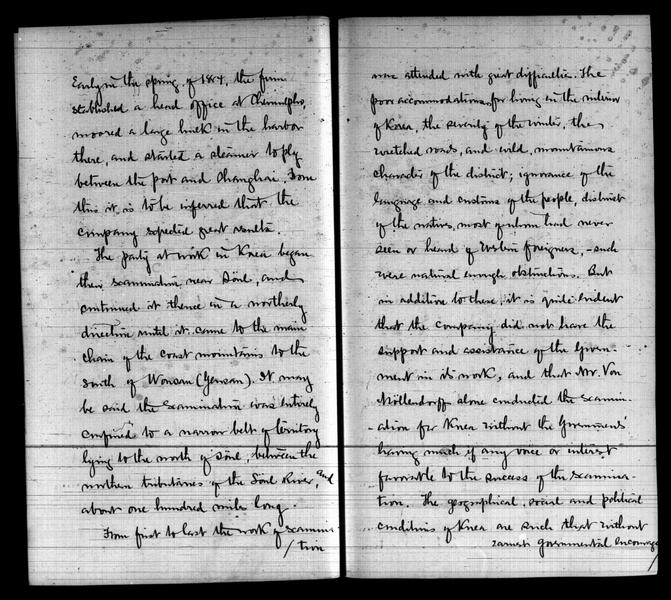 Early in the spring of 1884, the firm
established a head office at Chemulpho,
moored a large hulk in the harbor
there, and started a steamer to ply
between the port and Shanghai. From
this it is to be inferred that the
company expected great results.
The party at work in Korea began
their examination near Söul, and
continued it thence in a northerly
direction until it came to the main
chain of the coast mountains to the
south of Wonsan (Gensan). It may
be said the examination was entirely
confined to a narrow belt of territory
lying to the north of Söul, between the
northern tributaries of the Söul River, and
about one hundred miles long.
From first to last the work of examina-
/tion
were attended with great difficulties. The
poor accommodations for living in the interior
of Korea, the severity of the winter, the
wretched roads, and wild, mountainous
character of the district; ignorance of the
language and customs of the people, distrust
of the natives, most of whom had never
seen or heard of Western foreigners,- such
were natural enough obstructions. But
in addition to these, it is quite evident
that the company did not have the
support and assistance of the Govern-
ment in its work, and that Mr. Von
Möllendorff alone conducted the examin-
-ation for Korea without the Governments'
having much if any voice or interest
favorable to the success of the examina-
tion. The geographical, social and political
conditions of Korea are such that without
earnest Governmental encourage
/